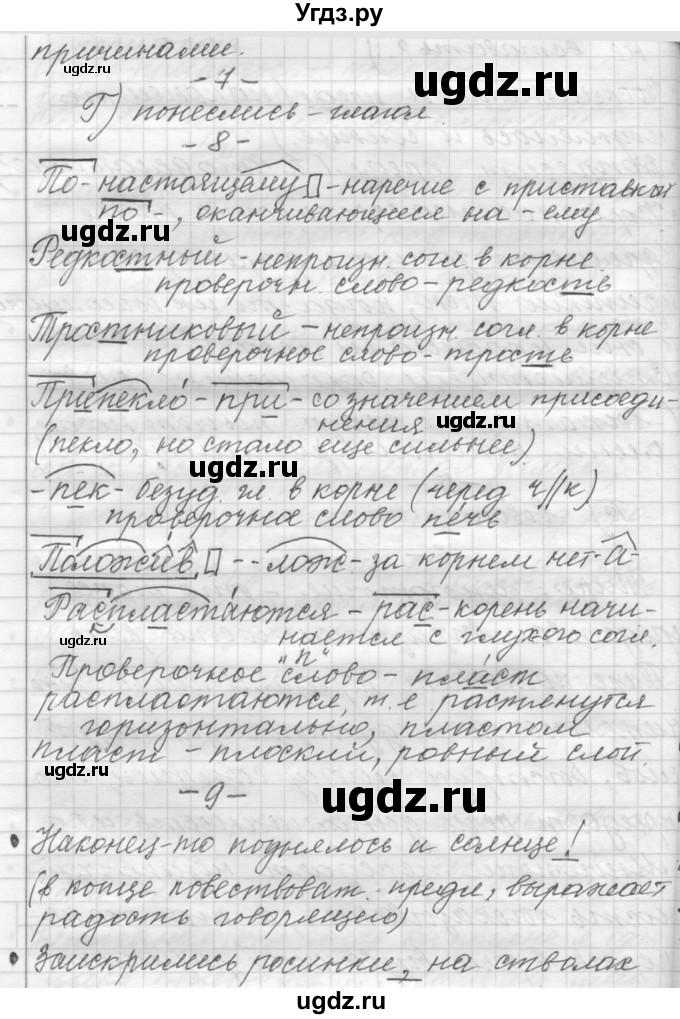 Угдз.ру
причинами.
ugdz.ru
ugdz.ru
- 7 -
Г) понеслись - глагол
- 8 -
По-настоящему - наречие с приставкой
по-, оканчивающееся на -ему
ugdz.ru
ugdz.ru
Редкостный - непроизн. согл. в корне
проверочн. слово - редкость
Тростниковый - непроизн. согл. в корне
проверочное слово - трость
Припекло - при - со значением присоеди-
нения
ugdz.ru
(пекло, но стало еще сильнее)
ugdz.ru
-пек- безуд. гл. в корне (черед ч//к)
проверочное слово печь
Положив - -лож- за корнем нет -а-
Распластаются - рас - корень начи-
ugdz.ru
нается с глухого согл.
"п"
Проверочное слово - пласт
распластаются, т.е растянутся
горизонтально, пластом
пласт - плоский, ровный слой.
ugdz.ru
- 9 -
ugdz.ru
Наконец-то поднялось и солнце!
(в конце повествоват. предл, выражает
радость говорящего)
Заискрились росинки, на стволах
ugdz.ru